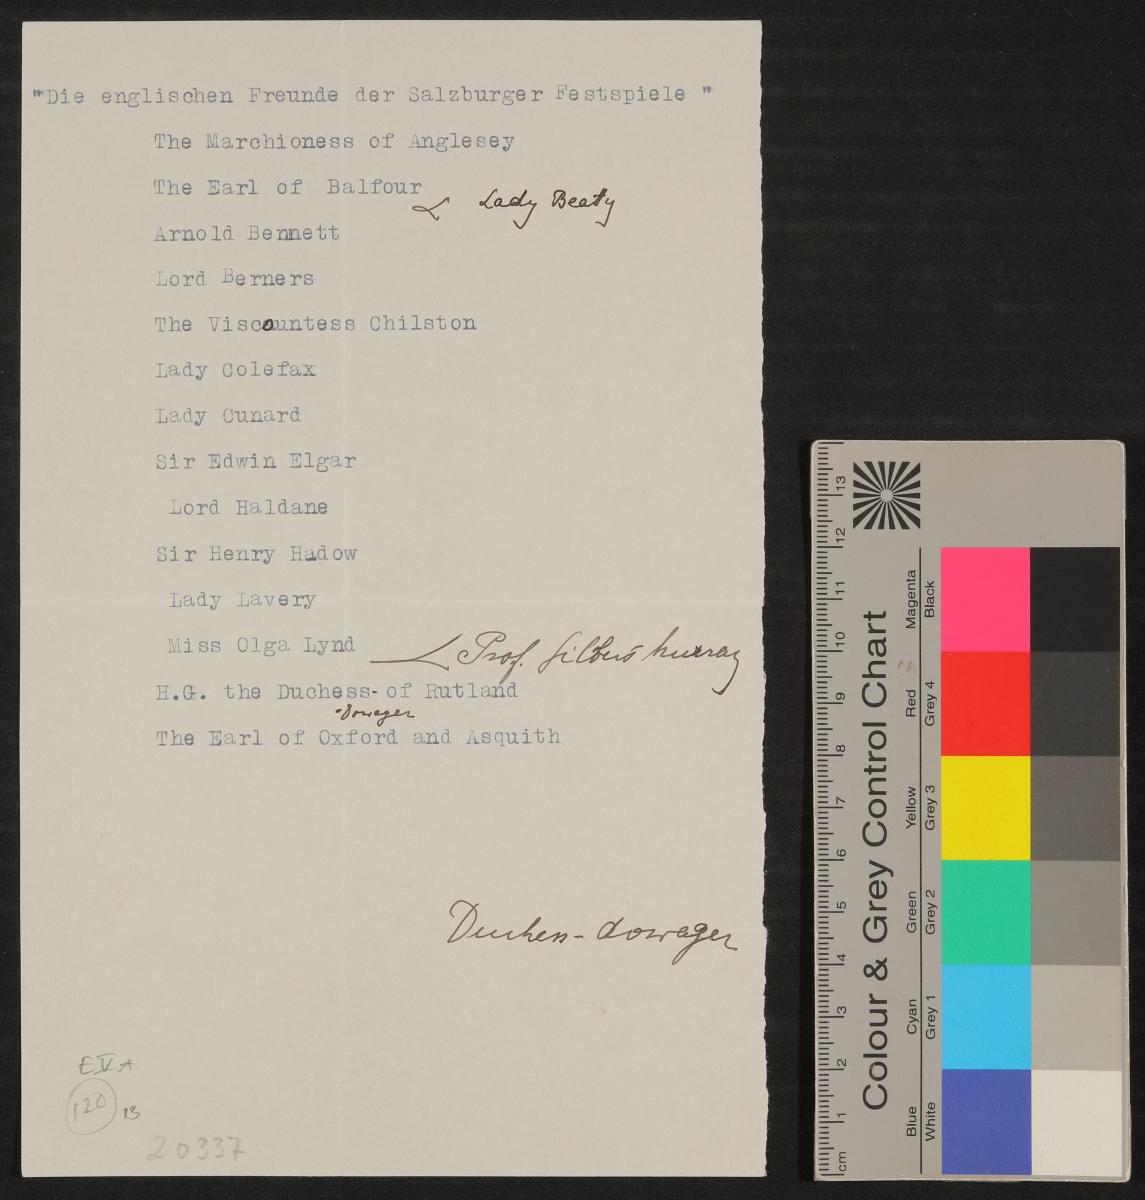 "Die englischen Freunde der Salzburger Festspiele "
The Marchioness of Anglesey
The Earl of Balfour
Lady Beaty
Arnold Bennett
Lord Berners
The Viscountess Chilston
Lady Colefax
Lady Cunard
Sir Edwin Elgar
Lord Haldane
Sir Henry Hadow
Lady Lavery
Miss Olga Lynd
Prof. Gilbert Murray
H.G. the Duchess- of Rutland
-Dowager
The Earl of Oxford and Asquith
Duchess-dowager
E V A
120 13
20337
Colour & Grey Control Chart
Blue Cyan Green Yellow Red Magenta
White Grey 1 Grey 2 Grey 3 Grey 4 Black
cm 1 2 3 4 5 6 7 8 9 10 11 12 13